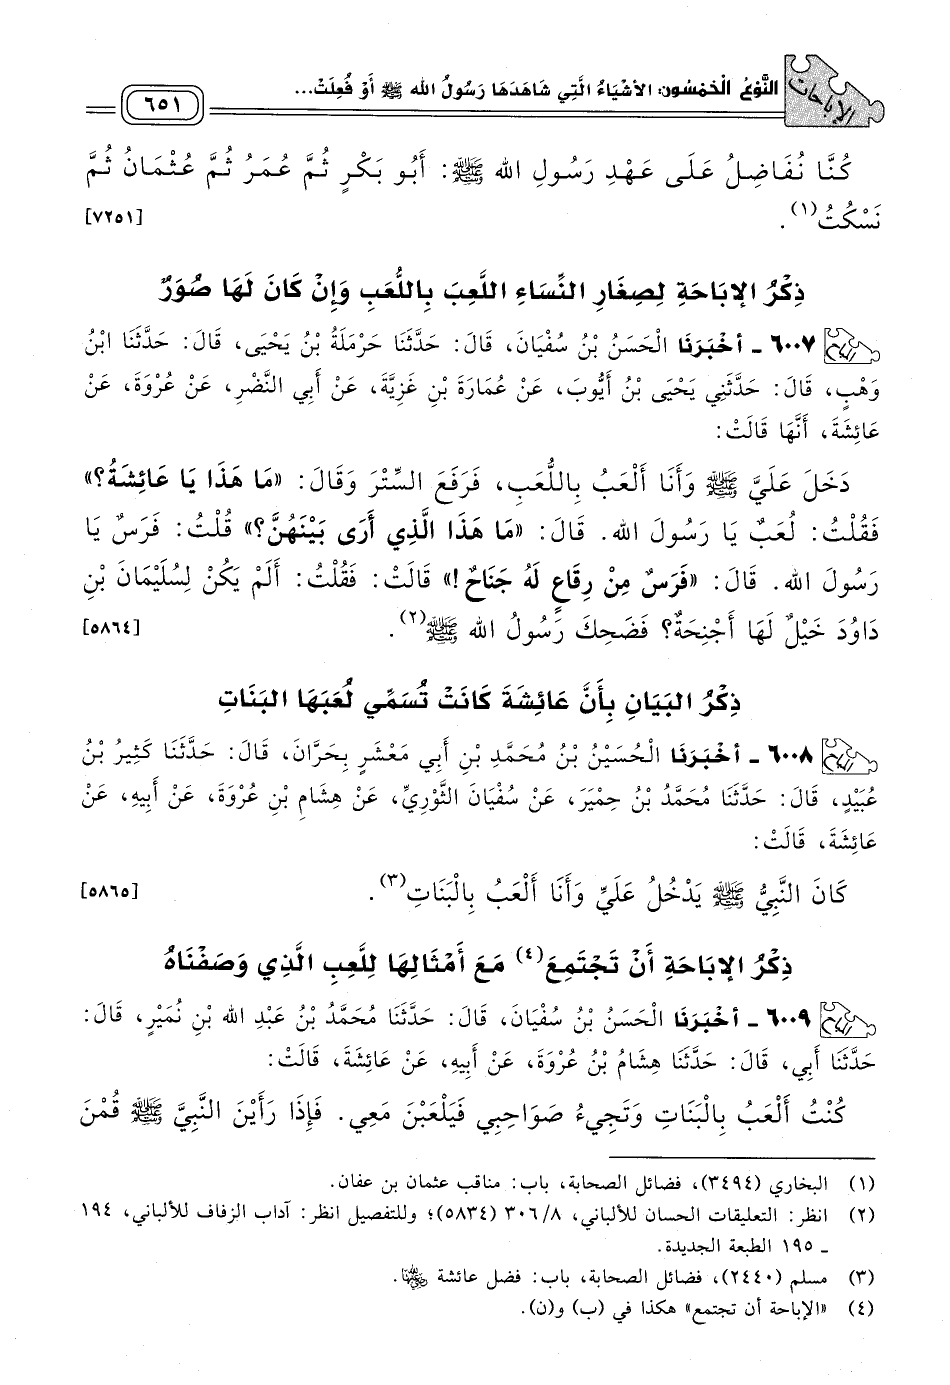 الإباحات
النَّوْعُ الْخَمْسُون: الأَشْيَاءُ الَّتِي شَاهَدَهَا رَسُولُ الله ﷺ أَوْ فُعِلَتْ...
٦٥١
كُنَّا نُفَاضِلُ عَلَى عَهْدِ رَسُولِ الله ﷺ: أَبُو بَكْرٍ ثُمَّ عُمَرُ ثُمَّ عُثْمَانُ ثُمَّ
نَسْكُتُ(١). [٧٢٥١]
ذِكْرُ الإبَاحَةِ لِصِغَارِ النِّسَاءِ اللَّعِبَ بِاللُّعَبِ وَإِنْ كَانَ لَهَا صُوَرٌ
٦٠٠٧ ـ أخْبَرَنَا الْحَسَنُ بْنُ سُفْيَانَ، قَالَ: حَدَّثَنَا حَرْمَلَةُ بْنُ يَحْيَى، قَالَ: حَدَّثَنَا ابْنُ
وَهْبٍ، قَالَ: حَدَّثَنِي يَحْيَى بْنُ أَيُّوبَ، عَنْ عُمَارَةَ بْنِ غَزِيَّةَ، عَنْ أَبِي النَّضْرِ، عَنْ عُرْوَةَ، عَنْ
عَائِشَةَ، أَنَّهَا قَالَتْ:
دَخَلَ عَلَيَّ ﷺ وَأَنَا أَلْعَبُ بِاللُّعَبِ، فَرَفَعَ السِّتْرَ وَقَالَ: «مَا هَذَا يَا عَائِشَةُ؟»
فَقُلْتُ: لُعَبٌ يَا رَسُولَ الله. قَالَ: «مَا هَذَا الَّذِي أَرَى بَيْنَهُنَّ؟» قُلْتُ: فَرَسٌ يَا
رَسُولَ الله. قَالَ: «فَرَسٌ مِنْ رِقَاعٍ لَهُ جَنَاحٌ!» قَالَتْ: فَقُلْتُ: أَلَمْ يَكُنْ لِسُلَيْمَانَ بْنِ
دَاوُدَ خَيْلٌ لَهَا أَجْنِحَةٌ؟ فَضَحِكَ رَسُولُ الله ﷺ(٢). [٥٨٦٤]
ذِكْرُ البَيَانِ بِأَنَّ عَائِشَةَ كَانَتْ تُسَمِّي لُعَبَهَا البَنَاتِ
٦٠٠٨ ـ أخْبَرَنَا الْحُسَيْنُ بْنُ مُحَمَّدِ بْنِ أَبِي مَعْشَرٍ بِحَرَّانَ، قَالَ: حَدَّثَنَا كَثِيرُ بْنُ
عُبَيْدٍ، قَالَ: حَدَّثَنَا مُحَمَّدُ بْنُ حِمْيَرَ، عَنْ سُفْيَانَ الثَّوْرِيِّ، عَنْ هِشَامِ بْنِ عُرْوَةَ، عَنْ أَبِيهِ، عَنْ
عَائِشَةَ، قَالَتْ:
كَانَ النَّبِيُّ ﷺ يَدْخُلُ عَلَيَّ وَأَنَا أَلْعَبُ بِالْبَنَاتِ(٣). [٥٨٦٥]
ذِكْرُ الإبَاحَةِ أَنْ تَجْتَمِعَ(٤) مَعَ أَمْثَالِهَا لِلَّعِبِ الَّذِي وَصَفْنَاهُ
٦٠٠٩ ـ أخْبَرَنَا الْحَسَنُ بْنُ سُفْيَانَ، قَالَ: حَدَّثَنَا مُحَمَّدُ بْنُ عَبْدِ الله بْنِ نُمَيْرٍ، قَالَ:
حَدَّثَنَا أَبِي، قَالَ: حَدَّثَنَا هِشَامُ بْنُ عُرْوَةَ، عَنْ أَبِيهِ، عَنْ عَائِشَةَ، قَالَتْ:
كُنْتُ أَلْعَبُ بِالْبَنَاتِ وَتَجِيءُ صَوَاحِبِي فَيَلْعَبْنَ مَعِي. فَإِذَا رَأَيْنَ النَّبِيَّ ﷺ قُمْنَ
(١) البخاري (٣٤٩٤)، فضائل الصحابة، باب: مناقب عثمان بن عفان.
(٢) انظر: التعليقات الحسان للألباني، ٣٠٦/٨ (٥٨٣٤)؛ وللتفصيل انظر: آداب الزفاف للألباني، ١٩٤
ـ ١٩٥ الطبعة الجديدة.
(٣) مسلم (٢٤٤٠)، فضائل الصحابة، باب: فضل عائشة رضي الله عنها.
(٤) «الإباحة أن تجتمع» هكذا في (ب) و(ن).